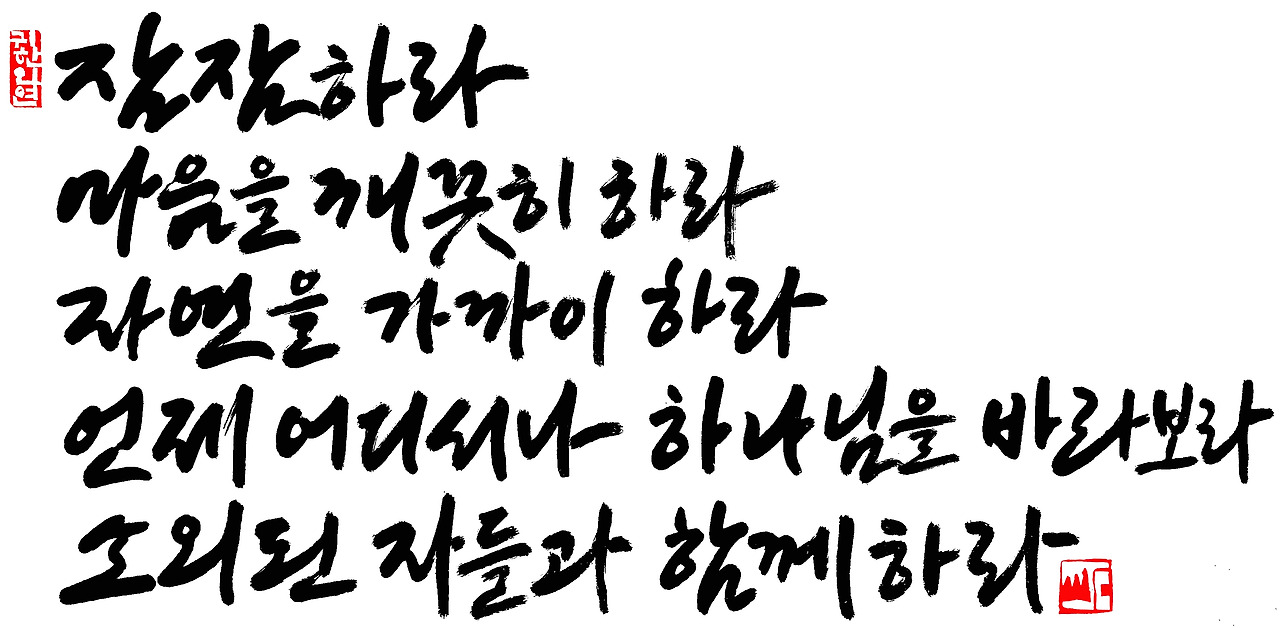 잠잠하라
마음을 깨끗히 하라
자연을 가까이 하라
언제 어디서나 하나님을 바라보라
소외된 자들과 함께 하라